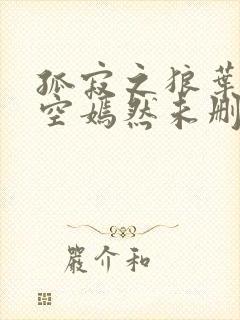 孤寂之狼葉
空嫣然未刪
嚴介和